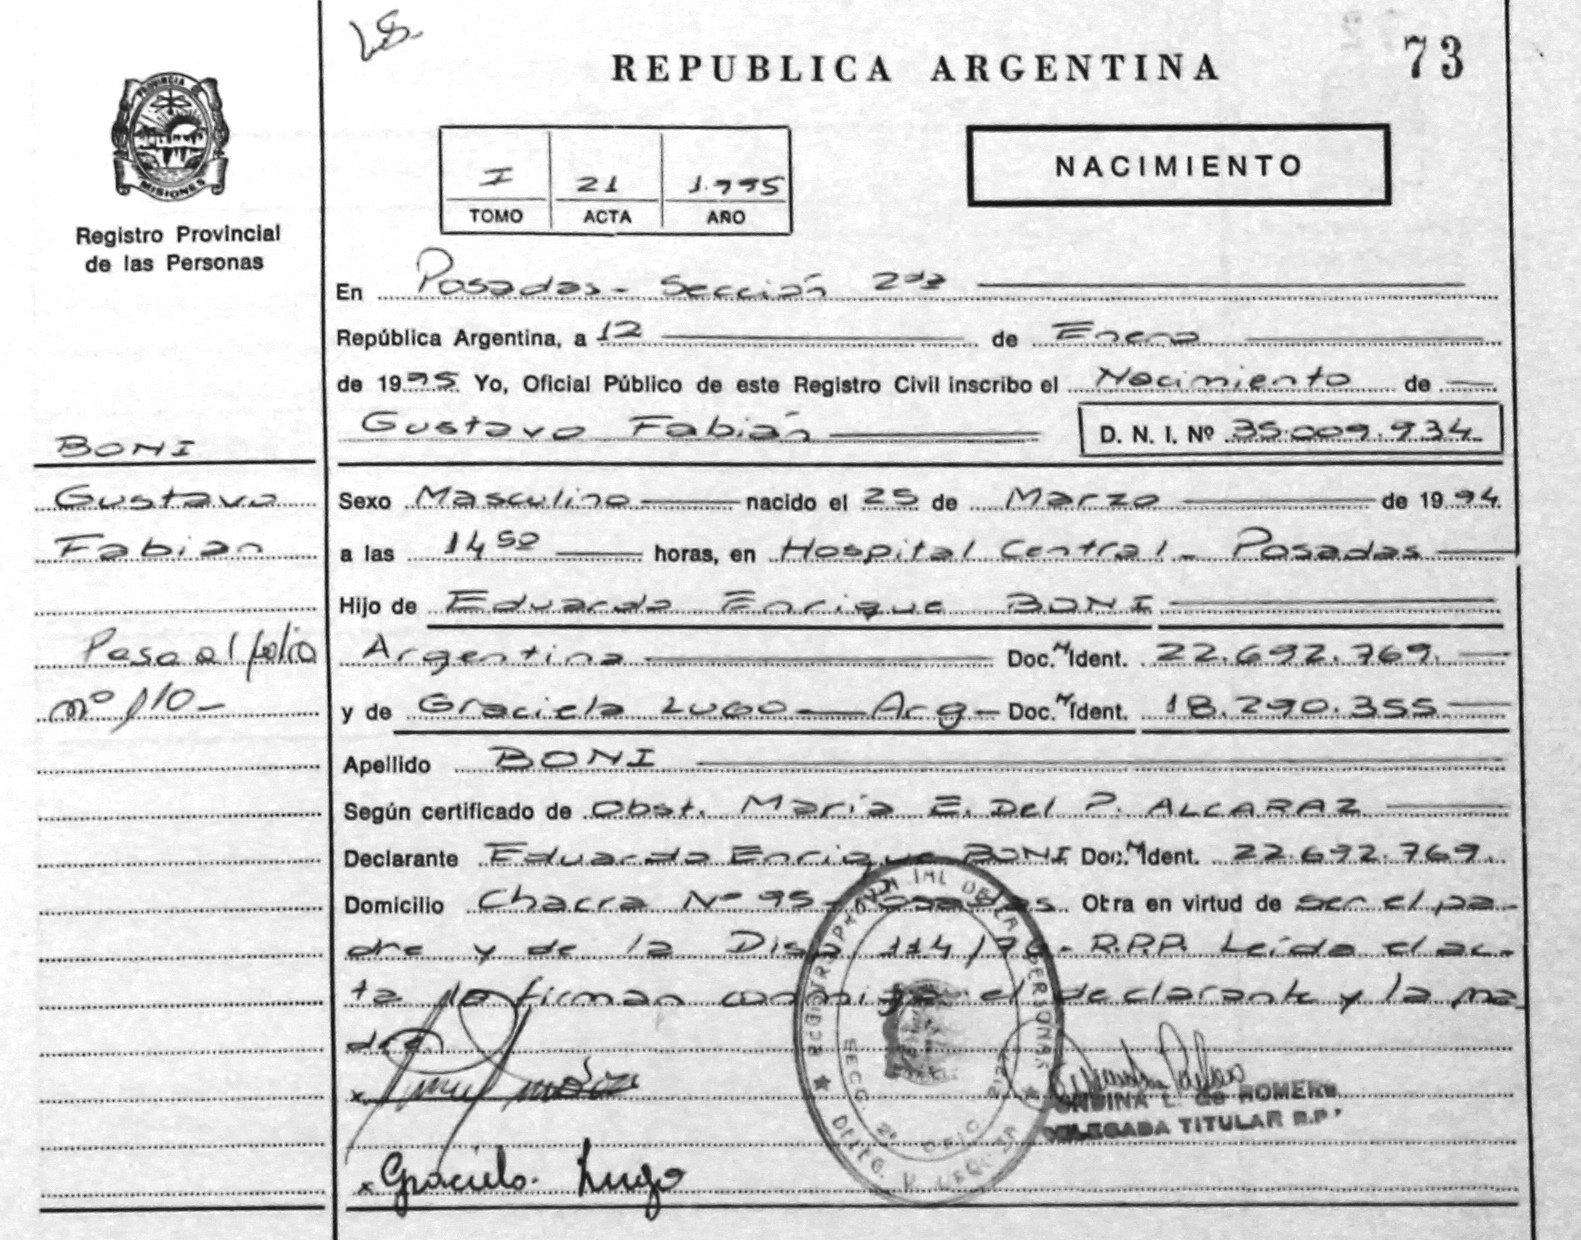 73
REPUBLICA ARGENTINA
NACIMIENTO
PROVINCIA DE
MISIONES
Registro Provincial
de las Personas
I 21 1.995
TOMO ACTA AÑO
En Posadas - Sección 2da
República Argentina, a 12 de Enero
de 1995 Yo, Oficial Público de este Registro Civil inscribo el Nacimiento de
Gustavo Fabián D. N. I. Nº 35.009.934
BONI
Gustavo
Fabian
Sexo Masculino nacido el 25 de Marzo de 1994
a las 14 50 horas, en Hospital Central - Posadas
Hijo de Eduardo Enrique BONI
Pasa al folio
nº 110-
Argentina Doc. N Ident. 22.692.769.
y de Graciela LUGO Arg- Doc. N Ident. 18.290.355
Apellido BONI
Según certificado de Obst. María E. Del P. ALCARAZ
Declarante Eduardo Enrique BONI Doc. N Ident. 22.692.769.
Domicilio Chacra Nº 95 - Posadas. Otra en virtud de ser el pa-
dre y de la Disp 114/76- R.P.P. Leída el ac-
ta la firman conmigo el declarante y la ma-
dre.
x
x Graciela Lugo
ONDINA L. de ROMERO
DELEGADA TITULAR R.P.